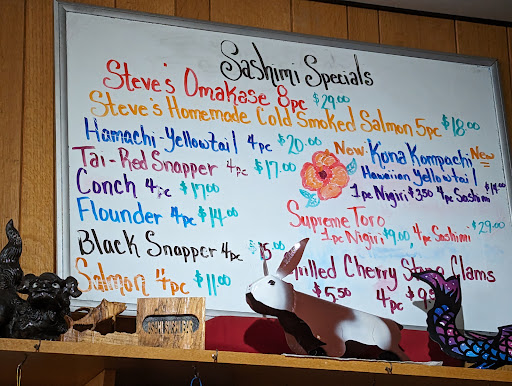 Sashimi Specials
Steve's Omakase 8pc $29.00
Steve's Homemade Cold Smoked Salmon 5pc $18.00
Hamachi-Yellowtail 4pc $20.00
Tai-Red Snapper 4pc $17.00
Conch 4pc $17.00
Flounder 4pc $14.00
Black Snapper 4pc
Salmon 4pc $11.00
New Kona Kompachi New
Hawaiian Yellowtail
1pc Nigiri $3.50 4pc Sashimi $14.00
Supreme Toro
1pc Nigiri $9.00, 4pc Sashimi $29.00
Cherry Clams
$5.50 4pc